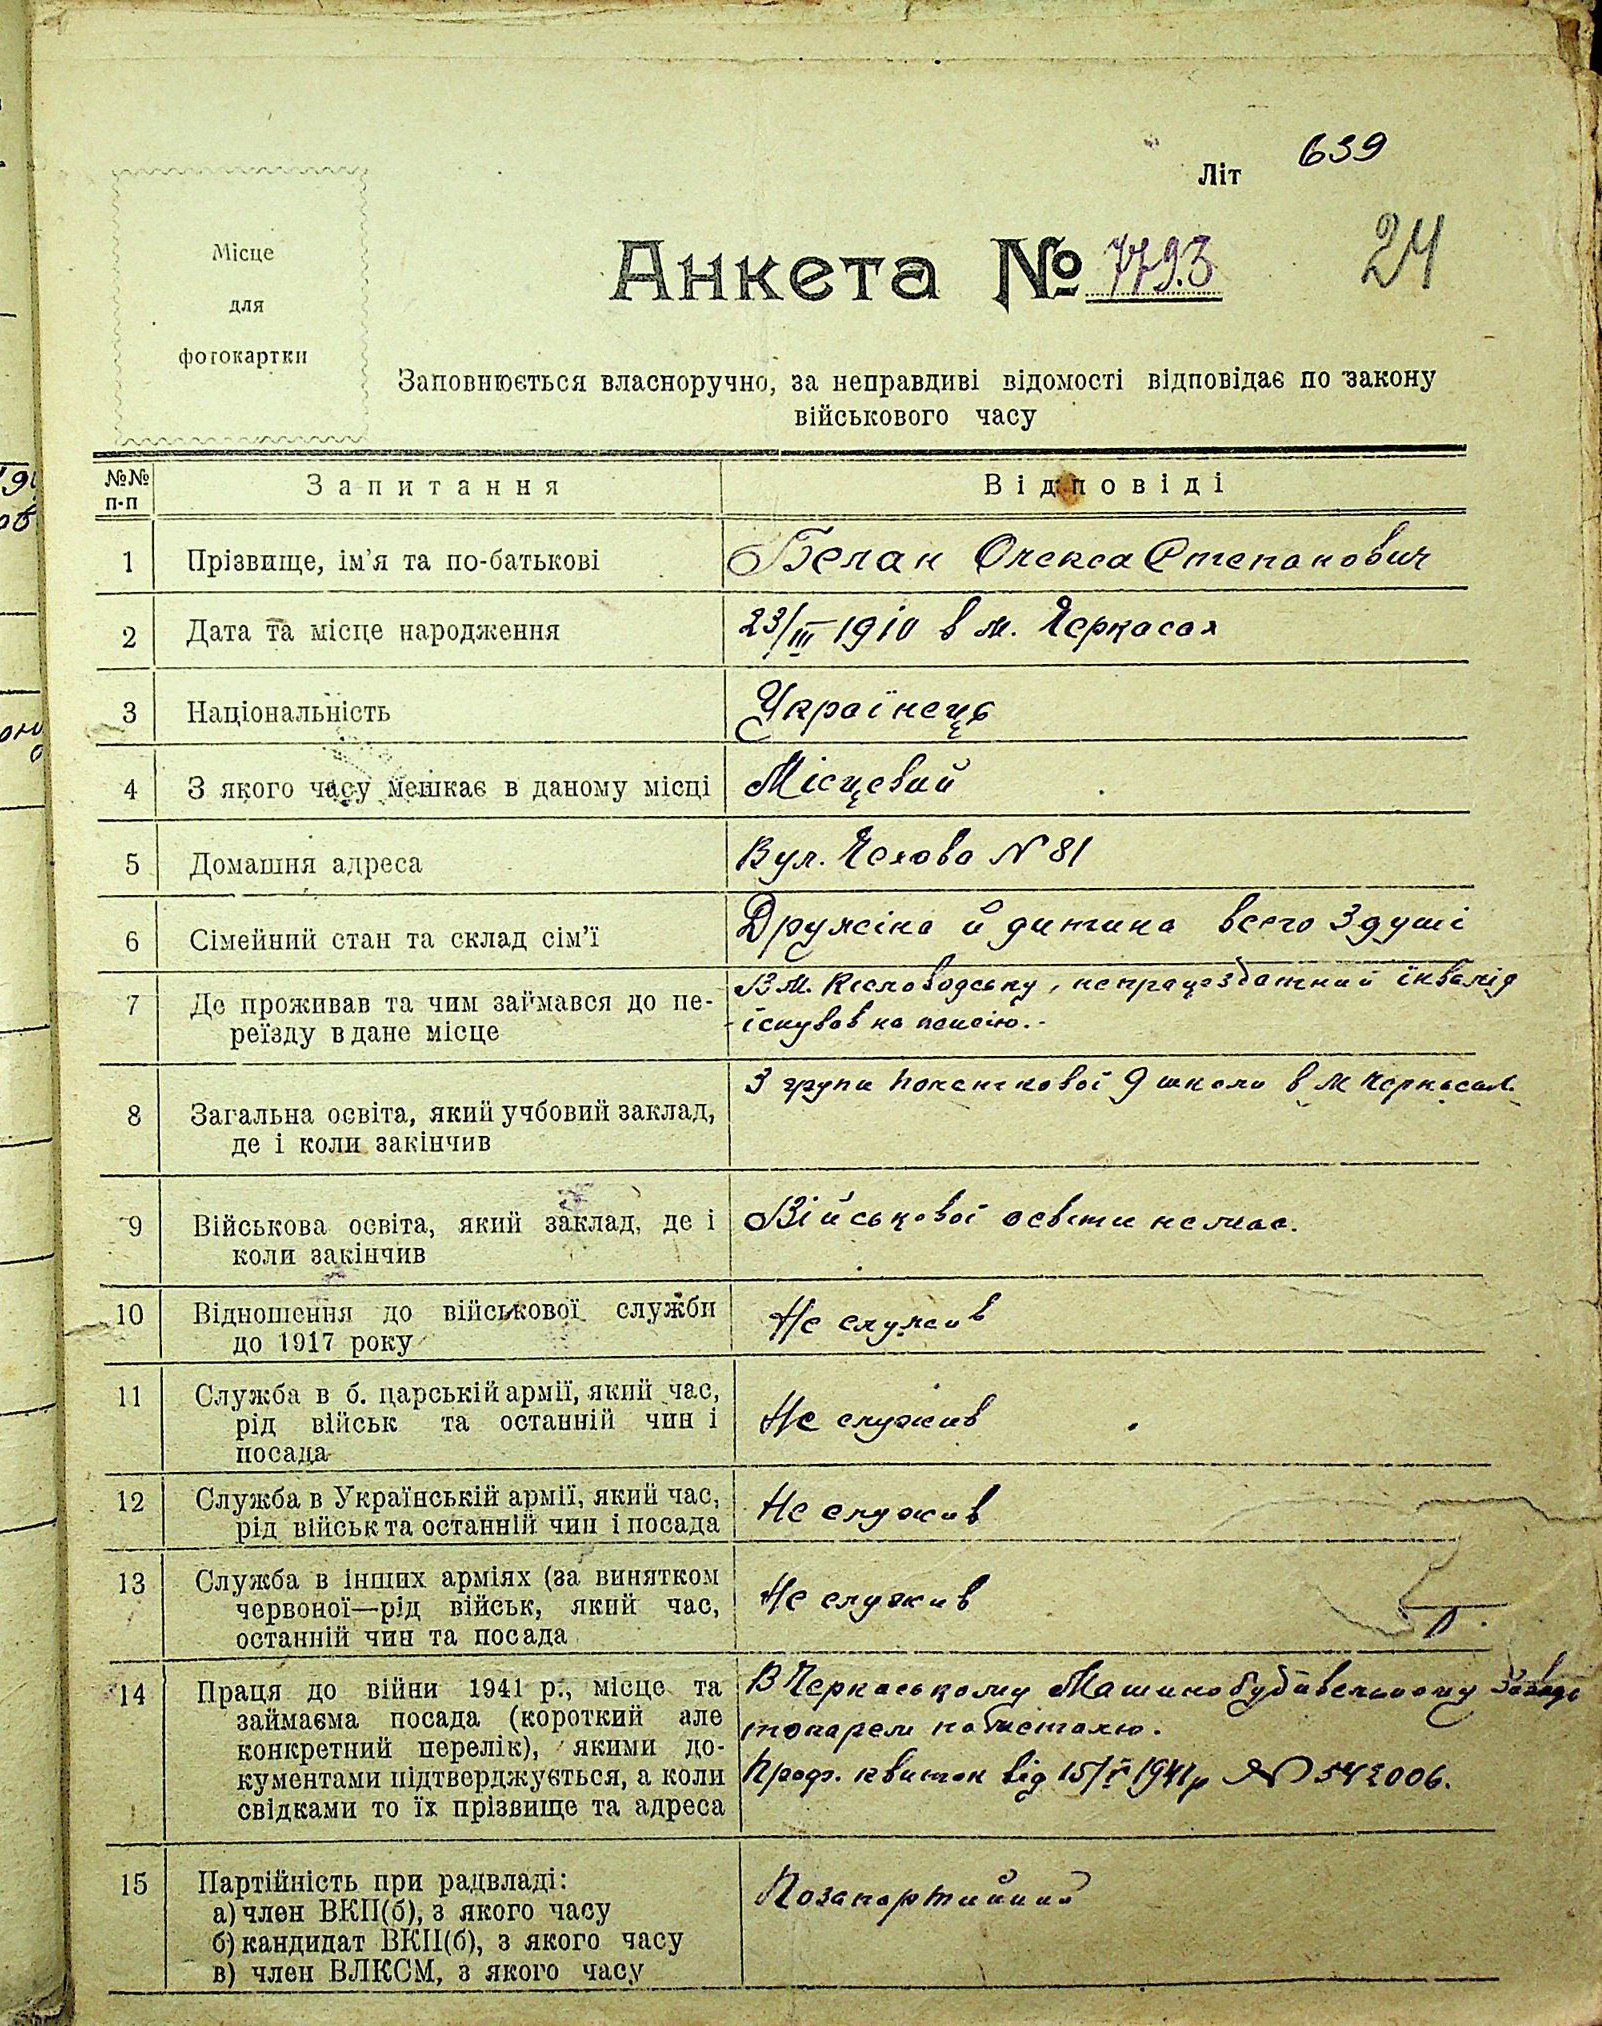 639
Літ
Місце
для
фотокартки
Анкета № 7793
24
Заповнюється власноручно, за неправдиві відомості відповідає по закону
військового часу
№№
п-п
Запитання
Відповіді
1
Прізвище, ім'я та по-батькові
Белан Олекса Степанович
2
Дата та місце народження
23/III 1910 в м. Черкасах
3
Національність
Українець
4
З якого часу мешкає в даному місці
Місцевий
5
Домашня адреса
Вул. Чехова N 81
6
Сімейний стан та склад сім'ї
Дружіна й дитина всего 3 душі
7
Де проживав та чим займався до пе-
реїзду в дане місце
В м. Кисловодську, непрацездатний інвалід
існував на пенсію.
8
Загальна освіта, який учбовий заклад,
де і коли закінчив
3 групи початкової 9 школи в м Черкасах.
9
Військова освіта, який заклад, де і
коли закінчив
Військової освіти немає.
10
Відношення до військової служби
до 1917 року
Не служив
11
Служба в б. царській армії, який час,
рід військ та останній чин і
посада
Не служив
12
Служба в Українській армії, який час,
рід військ та останній чин і посада
Не служив
13
Служба в інших арміях (за винятком
червоної—рід військ, який час,
останній чин та посада
Не служив
14
Праця до війни 1941 р., місце та
займаєма посада (короткий але
конкретний перелік), якими до-
кументами підтверджується, а коли
свідками то їх прізвище та адреса
В Черкаському Машинобудівельному Заводі
токарем по металю.
Проф. квиток від 15/V 1941р N 542006.
15
Партійність при радвладі:
а) член ВКП(б), з якого часу
б) кандидат ВКП(б), з якого часу
в) член ВЛКСМ, з якого часу
Позапартийний